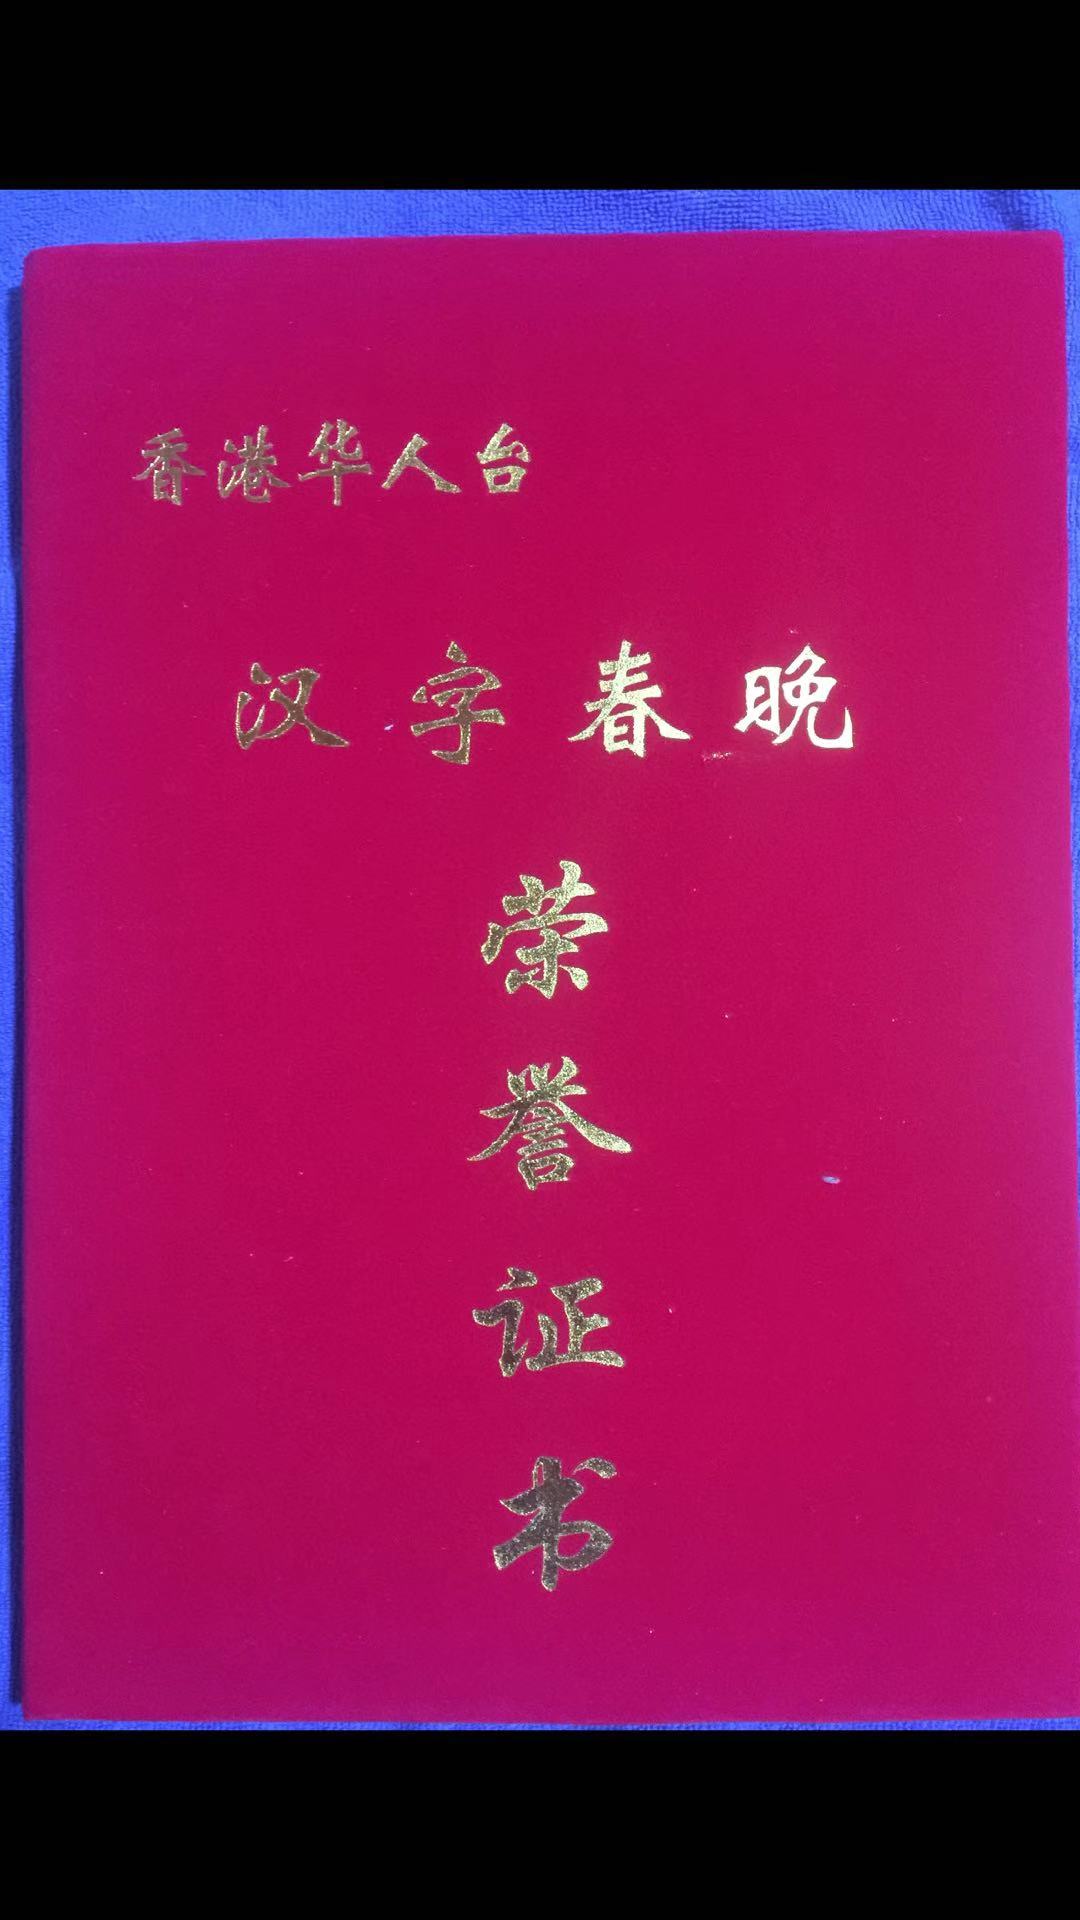 香港华人台
汉字春晚
荣
誉
证
书